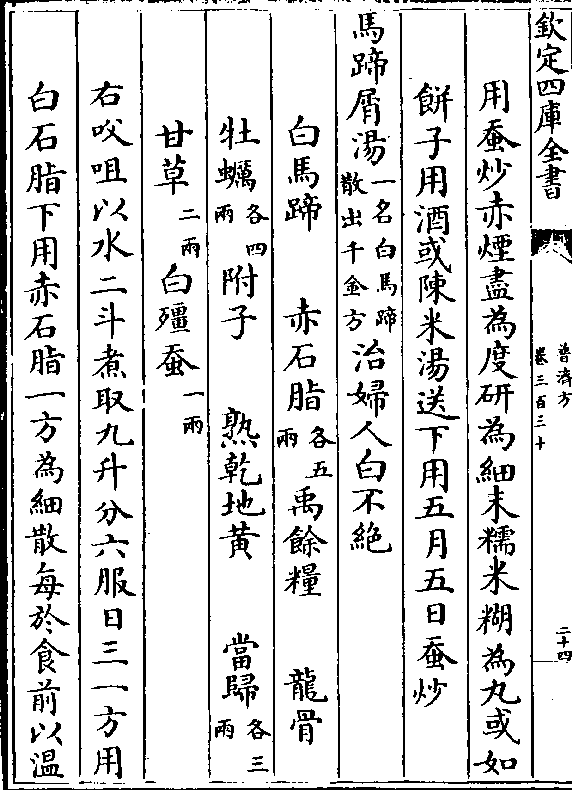 欽定四庫全書
普濟方
卷三百三十
二十四
用蚕炒赤煙盡為度研為細末糯米糊為丸或如
餅子用酒或陳米湯送下用五月五日蚕炒
馬蹄屑湯一名白馬蹄散出千金方治婦人白不絶
白馬蹄 赤石脂各五兩禹餘糧 龍骨
牡蠣各四兩附子 熟乾地黄 當歸各三兩
甘草二兩白殭蚕一兩
右㕮咀以水二斗煮取九升分六服日三一方用
白石脂下用赤石脂一方為細散每於食前以温